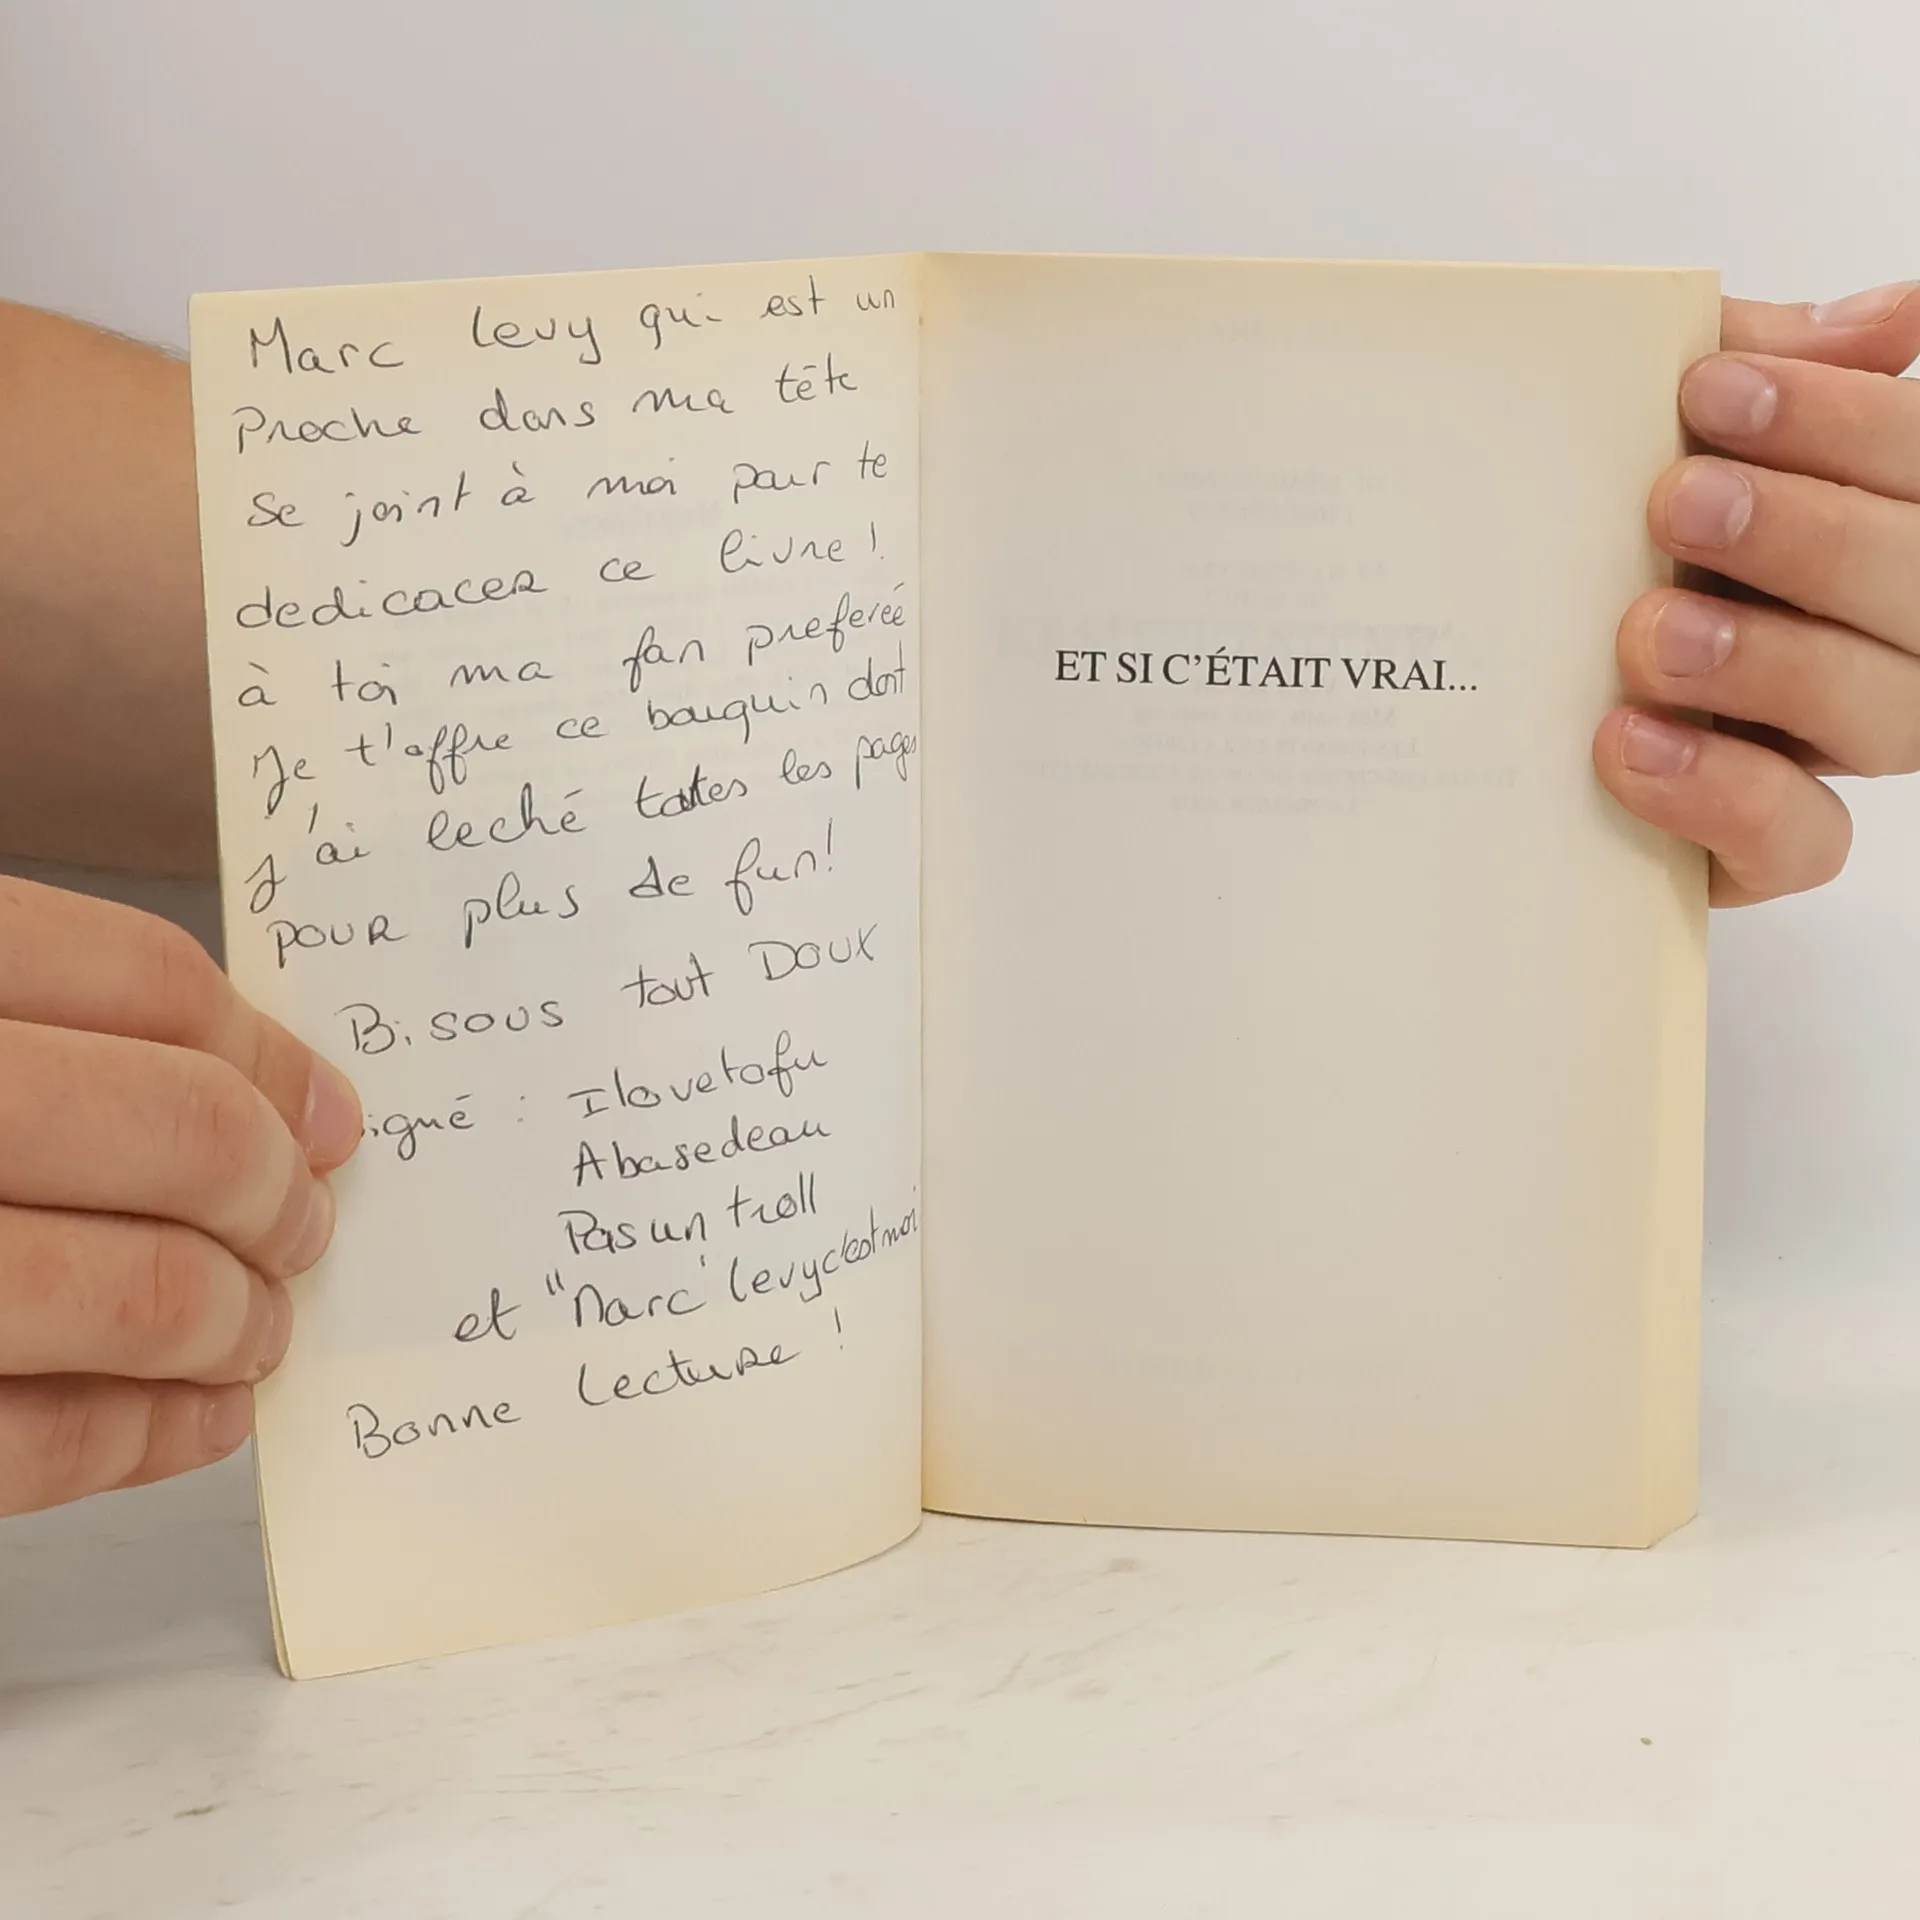 Marc Levy qui est un
Proche dans ma tête
se joint à moi pour te
dedicacer ce livre !
à toi ma fan preferée
Je t'offre ce bouquin dont
j'ai leché toutes les pages
pour plus de fun!
Bisous tout Doux
signé : Ilovetofu
Abasedeau
Pas un troll
et "Marc" levyc'est moi
Bonne Lecture !
ET SI C'ÉTAIT VRAI...